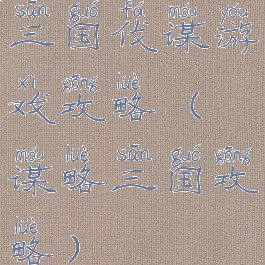 sān guó fá móu yóu
三国伐谋游
xì gōng lüè
戏攻略（
móu lüè sān guó gōng
谋略三国攻
lüè
略）